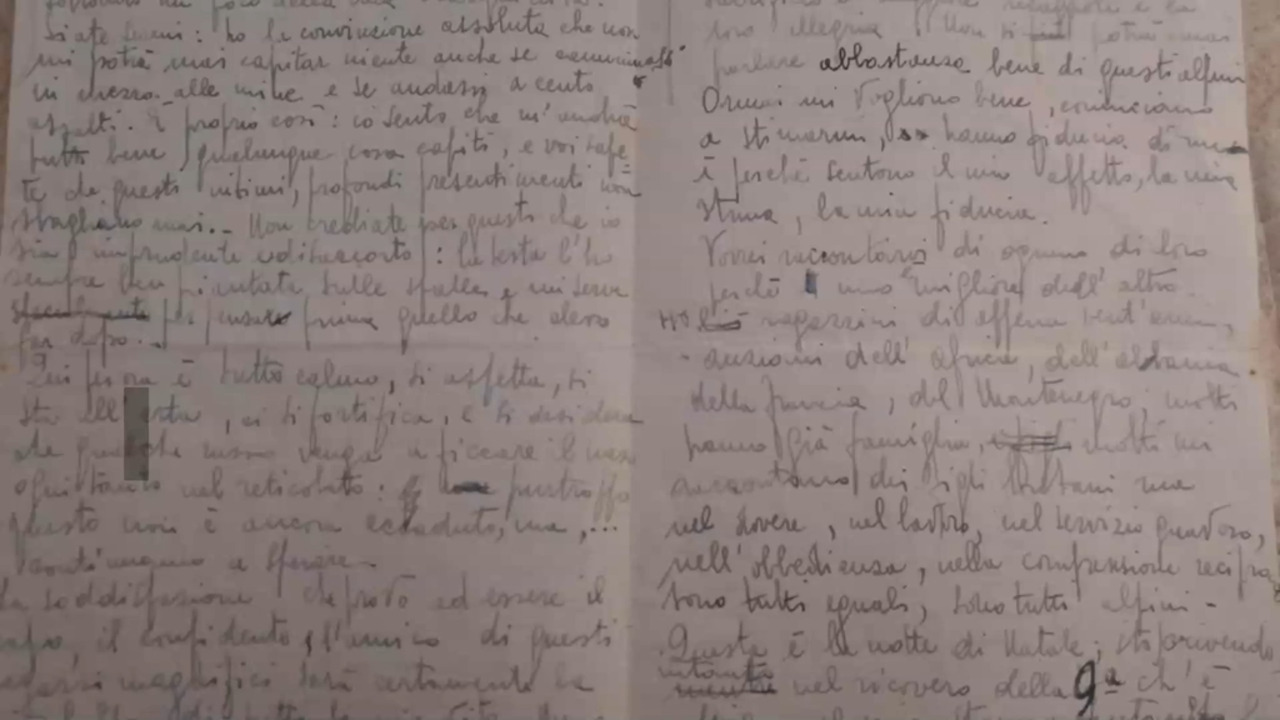 siate sereni: ho la convinzione assoluta che non
mi potrà mai capitar niente anche se camminassi
in mezzo alle mine e se andassi a cento
assalti. È proprio così: io sento che m'andrà
tutto bene, qualunque cosa capiti, e voi sape
te che questi intimi, profondi presentimenti non
sbagliano mai. Non crediate per questo che io
sia imprudente : la testa l'ho
sempre ben piantata sulle spalle e mi serve
per pensare prima quello che devo
far dopo.
Qui per ora è tutto calmo, si aspetta, si
sta all'erta, ci si fortifica, e si desidera
che qualche russo venga a ficcare il naso
ogni tanto nel reticolato: purtroppo
questo non è ancora accaduto, ma, ...
continuiamo a sperare.
La soddisfazione che provo ad essere il
capo, il confidente, l'amico di questi
ragazzi magnifici sarà certamente la
loro allegria. Non si potrà mai
parlare abbastanza bene di questi alpini
Ormai mi vogliono bene, cominciano
a stimarmi, hanno fiducia di me
è perché sentono il mio affetto, la mia
stima, la mia fiducia.
Vorrei raccontarvi di ognuno di loro
perché uno è migliore dell'altro.
Ho ragazzini di appena vent'anni,
anziani dell'Africa, dell'Albania
della Francia, del Montenegro; molti
hanno già famiglia, molti mi
raccontano dei figli lontani ma
nel dovere, nel lavoro, nel servizio gravoso,
nell'obbedienza, nella comprensione recipro
sono tutti eguali, sono tutti alpini -
Questa è la notte di Natale; sto scrivendo
intanto nel ricovero della 9ª ch'è